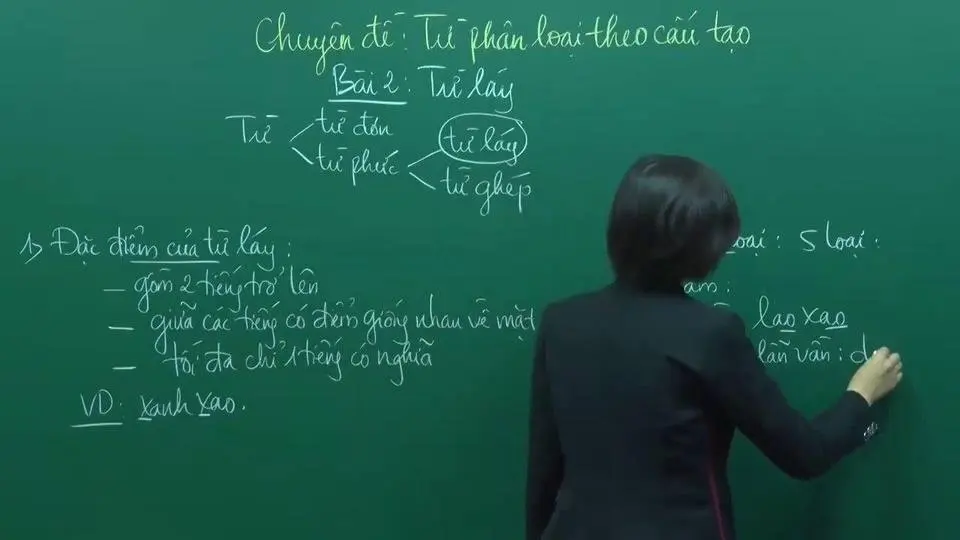 Chuyên đề: Từ phân loại theo cấu tạo
Bài 2: Từ láy
Từ
từ đơn
từ phức
từ láy
từ ghép
1) Đặc điểm của từ láy:
– gồm 2 tiếng trở lên
– giữa các tiếng có điểm giống nhau về mặt
– tối đa chỉ 1 tiếng có nghĩa
VD: xanh xao.
loại: 5 loại:
lao xao
lẫn vần: d